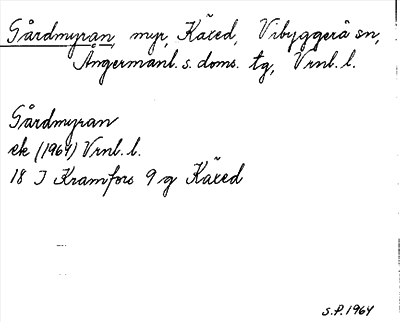 Gårdmyran, myr, Käxed, Vibyggerå sn,
Ångermanl. s. doms. tg, Vrnl. l.
Gårdmyran
ek (1964) Vrnl. l.
18 I Kramfors 9 g Käxed
S.P. 1964